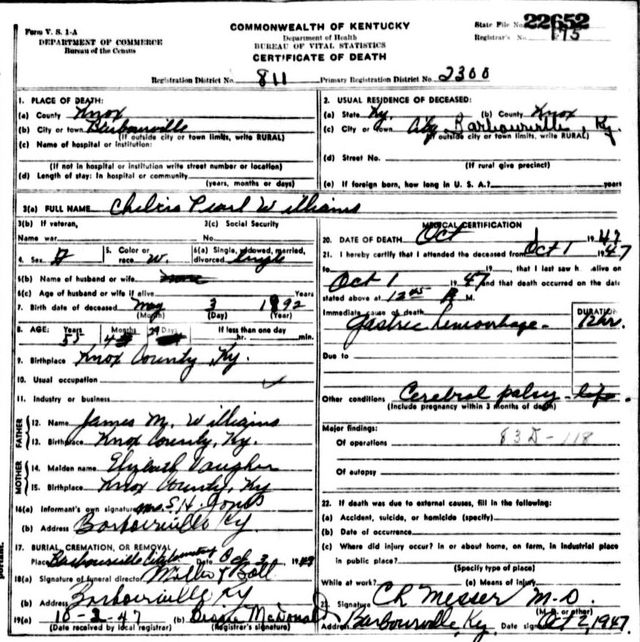 Form V. S. 1-A
DEPARTMENT OF COMMERCE
Bureau of the Census
COMMONWEALTH OF KENTUCKY
Department of Health
BUREAU OF VITAL STATISTICS
CERTIFICATE OF DEATH
State File No. 22652
Registrar's No. 195
Registration District No. 811 Primary Registration District No. 2300
1. PLACE OF DEATH:
(a) County Knox
(b) City or town Barbourville
(If outside city or town limits, write RURAL)
(c) Name of hospital or institution:
(If not in hospital or institution write street number or location)
(d) Length of stay: In hospital or community
(years, months or days)
2. USUAL RESIDENCE OF DECEASED:
(a) State Ky. (b) County Knox
(c) City or town City Barbourville, Ky
(If outside city or town limits, write RURAL)
(d) Street No.
(If rural give precinct)
(e) If foreign born, how long in U. S. A.? years
3(a) FULL NAME Pearl Williams
3(b) If veteran,
Name war
3(c) Social Security
No.
4. Sex F
5. Color or
race W.
6(a) Single, widowed, married,
divorced Single
6(b) Name of husband or wife
6(c) Age of husband or wife if alive Years
7. Birth date of deceased May 3 1892
(Month) (Day) (Year)
8. AGE: Years Months Days If less than one day
55 4 29 hr. min.
9. Birthplace Knox County, Ky.
10. Usual occupation
11. Industry or business
FATHER
12. Name James M. Williams
13. Birthplace Knox County, Ky.
MOTHER
14. Maiden name Elizabeth Vaughn
15. Birthplace Knox County, Ky
16(a) Informant's own signature Mrs. S. H. Jones
(b) Address Barbourville Ky
17. BURIAL, CREMATION, OR REMOVAL
Barbourville Cemetery Date Oct 2, 1947
18(a) Signature of funeral director
(b) Address Barbourville Ky
19(a) 10-2-47 (b) McDonald
(Date received by local registrar) (Registrar's signature)
MEDICAL CERTIFICATION
20. DATE OF DEATH Oct 1 1947
21. I hereby certify that I attended the deceased from Oct 1 1947
to , 19 , that I last saw h alive on
Oct 1 1947 and that death occurred on the date
stated above at 12 05 M.
Immediate cause of death DURATION
Gastric hemorrhage - 12 hr.
Due to
Other conditions Cerebral palsy - life.
(Include pregnancy within 3 months of death)
Major findings:
Of operations 83D-118
Of autopsy
22. If death was due to external causes, fill in the following:
(a) Accident, suicide, or homicide (specify)
(b) Date of occurrence
(c) Where did injury occur? In or about home, on farm, in industrial place
in public place?
(Specify type of place)
While at work? (e) Means of injury
23. Signature CR Messer M-D.
(M.D. or other)
Address Barbourville Ky. Date signed Oct 2, 1947